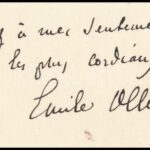 à mes sentimen
les plus cordiaux
Emile Olli